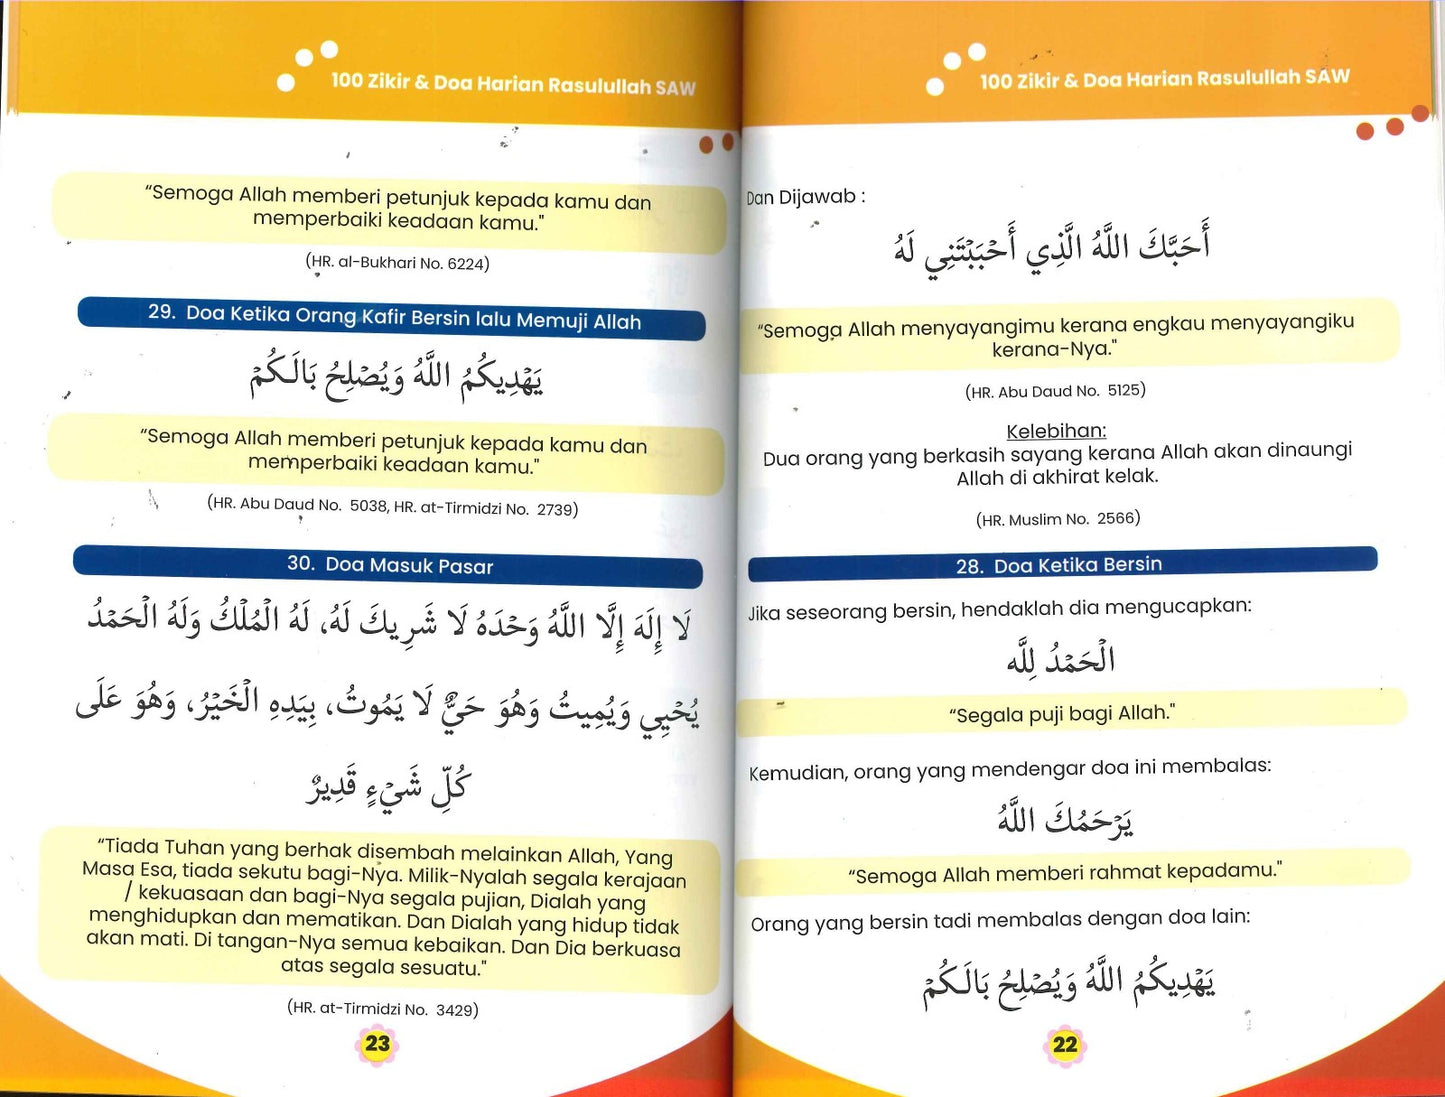 100 Zikir & Doa Harian Rasulullah SAW
Dan Dijawab :
أَحَبَّكَ اللَّهُ الَّذِي أَحْبَبْتَنِي لَهُ
“Semoga Allah menyayangimu kerana engkau menyayangiku
kerana-Nya."
(HR. Abu Daud No. 5125)
Kelebihan:
Dua orang yang berkasih sayang kerana Allah akan dinaungi
Allah di akhirat kelak.
(HR. Muslim No. 2566)
28. Doa Ketika Bersin
Jika seseorang bersin, hendaklah dia mengucapkan:
الْحَمْدُ لِلَّه
“Segala puji bagi Allah."
Kemudian, orang yang mendengar doa ini membalas:
يَرْحَمُكَ اللَّهُ
“Semoga Allah memberi rahmat kepadamu."
Orang yang bersin tadi membalas dengan doa lain:
يَهْدِيكُمُ اللَّهُ وَيُصْلِحُ بَالَكُمْ
22
100 Zikir & Doa Harian Rasulullah SAW
“Semoga Allah memberi petunjuk kepada kamu dan
memperbaiki keadaan kamu."
(HR. al-Bukhari No. 6224)
29. Doa Ketika Orang Kafir Bersin lalu Memuji Allah
يَهْدِيكُمُ اللَّهُ وَيُصْلِحُ بَالَكُمْ
“Semoga Allah memberi petunjuk kepada kamu dan
memperbaiki keadaan kamu."
(HR. Abu Daud No. 5038, HR. at-Tirmidzi No. 2739)
30. Doa Masuk Pasar
لَا إِلَهَ إِلَّا اللَّهُ وَحْدَهُ لَا شَرِيكَ لَهُ، لَهُ الْمُلْكُ وَلَهُ الْحَمْدُ
يُحْيِي وَيُمِيتُ وَهُوَ حَيٌّ لَا يَمُوتُ، بِيَدِهِ الْخَيْرُ، وَهُوَ عَلَى
كُلِّ شَيْءٍ قَدِيرٌ
“Tiada Tuhan yang berhak disembah melainkan Allah, Yang
Masa Esa, tiada sekutu bagi-Nya. Milik-Nyalah segala kerajaan
/ kekuasaan dan bagi-Nya segala pujian, Dialah yang
menghidupkan dan mematikan. Dan Dialah yang hidup tidak
akan mati. Di tangan-Nya semua kebaikan. Dan Dia berkuasa
atas segala sesuatu."
(HR. at-Tirmidzi No. 3429)
23